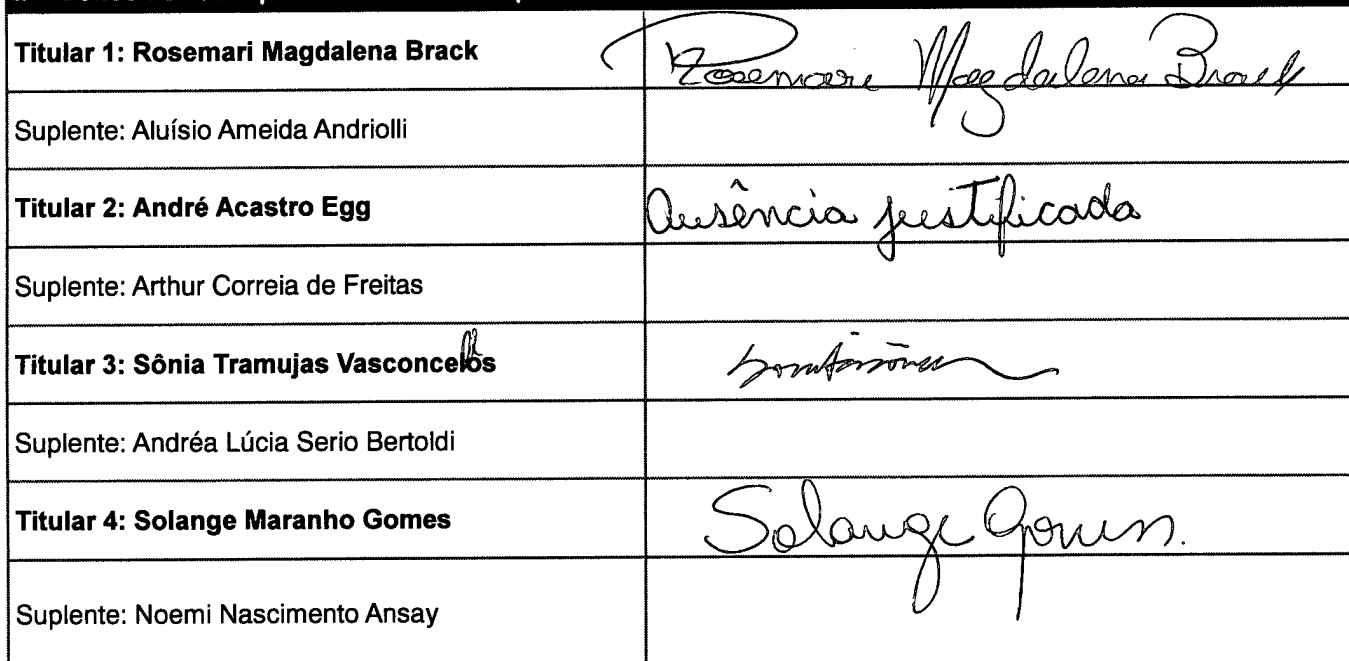 Titular 1: Rosemari Magdalena Brack Rosemari Magdalena Brack
Suplente: Aluísio Ameida Andriolli
Titular 2: André Acastro Egg Ausência justificada
Suplente: Arthur Correia de Freitas
Titular 3: Sônia Tramujas Vasconcelos
Suplente: Andréa Lúcia Serio Bertoldi
Titular 4: Solange Maranho Gomes Solange Gomes.
Suplente: Noemi Nascimento Ansay